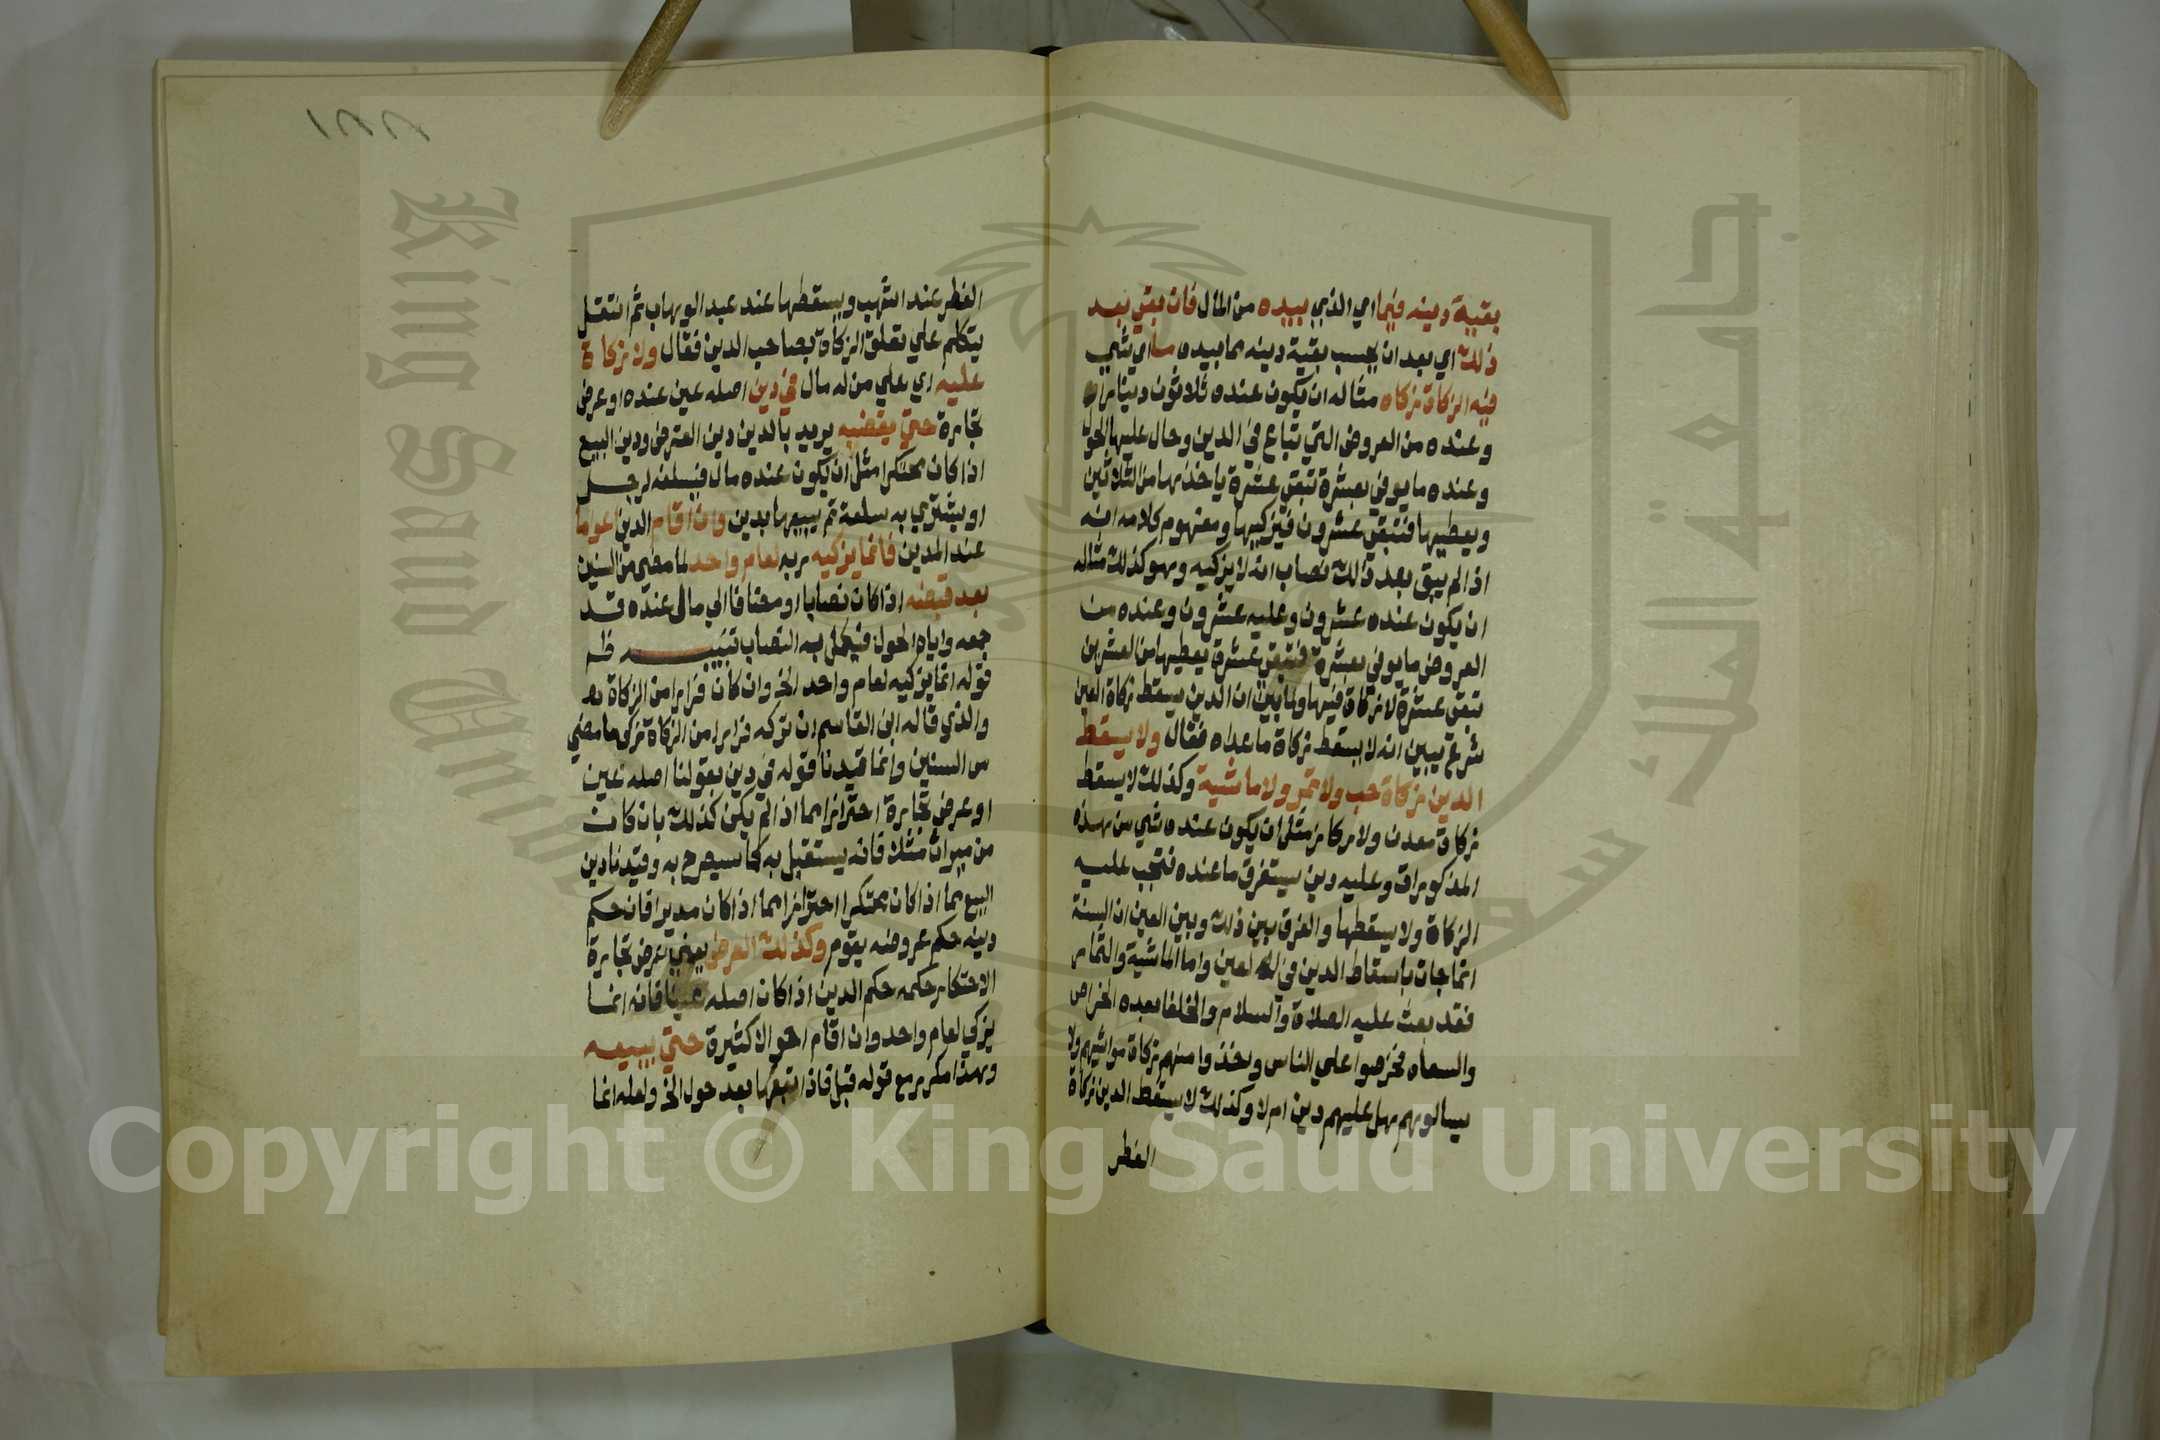 بقية دينه فيما اي الذي بيده من المال فان بقي بعد
ذلك اي بعد ان يحسب بقية دينه مما بيده ما اي شي
فيه الزكاة زكاه مثاله ان يكون عنده ثلاثون دينارا
وعنده من العروض التي تباع في الدين وحال عليها الحول
وعنده ما يوفي بعشرة تبقي عشرة ياخذها من الثلاثين
ويعطيها فتبقي عشرون فيزكيها ومفهوم كلامه انه
اذا لم يبق بعد ذلك نصاب انه لا يزكيه وهو كذلك مثاله
ان يكون عنده عشرون وعليه عشرون وعنده من
العروض ما يوفي بعشرة فتبقي عشرة يعطيها من العشرين
تبقي عشرة لا زكاة فيها ولما بين ان الدين يسقط زكاة العين
شرع يبين انه لا يسقط زكاة ما عداه فقال ولا يسقط
الدين زكاة حب ولا تمر ولا ماشية وكذلك لا يسقط
زكاة معدن ولا ركاز مثل ان يكون عنده شي من هذه
المذكورات وعليه دين يستغرق ما عنده فتجب عليه
الزكاة ولا يسقطها والفرق بين ذلك وبين العين ان السنة
انما جات باسقاط الدين في العين واما الماشية والثمار
فقد بعث عليه الصلاة والسلام والخلفا بعده الخراص
والسعاه فخرصوا علي الناس وخذوا منهم زكاة مواشيهم ولا
يسالوهم هل عليهم دين ام لا وكذلك لا يسقط الدين زكاة
الفطر
١٨٨
الفطر عند اشهب ويسقطها عند عبد الوهاب ثم انتقل
يتكلم علي تعلق الزكاة بصاحب الدين فقال ولا زكاة
عليه اي علي من له مال في دين اصله عين عنده او عرض
تجارة حتي يقضيه يريد بالدين دين القرض ودين البيع
اذا كان محتكرا مثل ان يكون عنده مال فيسلفه لرجل
او يشتري به سلعة ثم يبيعها بدين وان اقام الدين اعواما
عند المدين فانما يزكيه ربه لعام واحد لما مضي من السنين
بعد قبضه اذا كان نصابا او مضافا الي مال عنده قد
جمعه واياه الحول فيكمل به النصاب تنبيه ظم
قوله انما يزكيه لعام واحد الخ وان كان فرارا من الزكاة
والذي قاله ابن القاسم ان تركه فرارا من الزكاة زكي ما مضي
من السنين وانما قيدنا قوله في دين بقولنا اصله عين
او عرض تجارة احترازا مما اذا لم يكن كذلك بان كان
من ميراث مثلا فانه يستقبل به كما سيصرح به وقيدنا دين
البيع بما اذا كان محتكرا احترازا مما اذا كان مديرا فان حكم
دينه حكم عروضه يقوم وكذلك العرض يعني عرض تجارة
الاحتكار حكمه حكم الدين اذا كان اصله عينا فانه انما
يزكي لعام واحد وان اقام احوالا كثيرة حتي يبيعه
وهذا مكرر مع قوله قبل فاذا بعتها بعد حول الخ ولعله انما
Copyright © King Saud University
King Saud University
جامعة الملك سعود